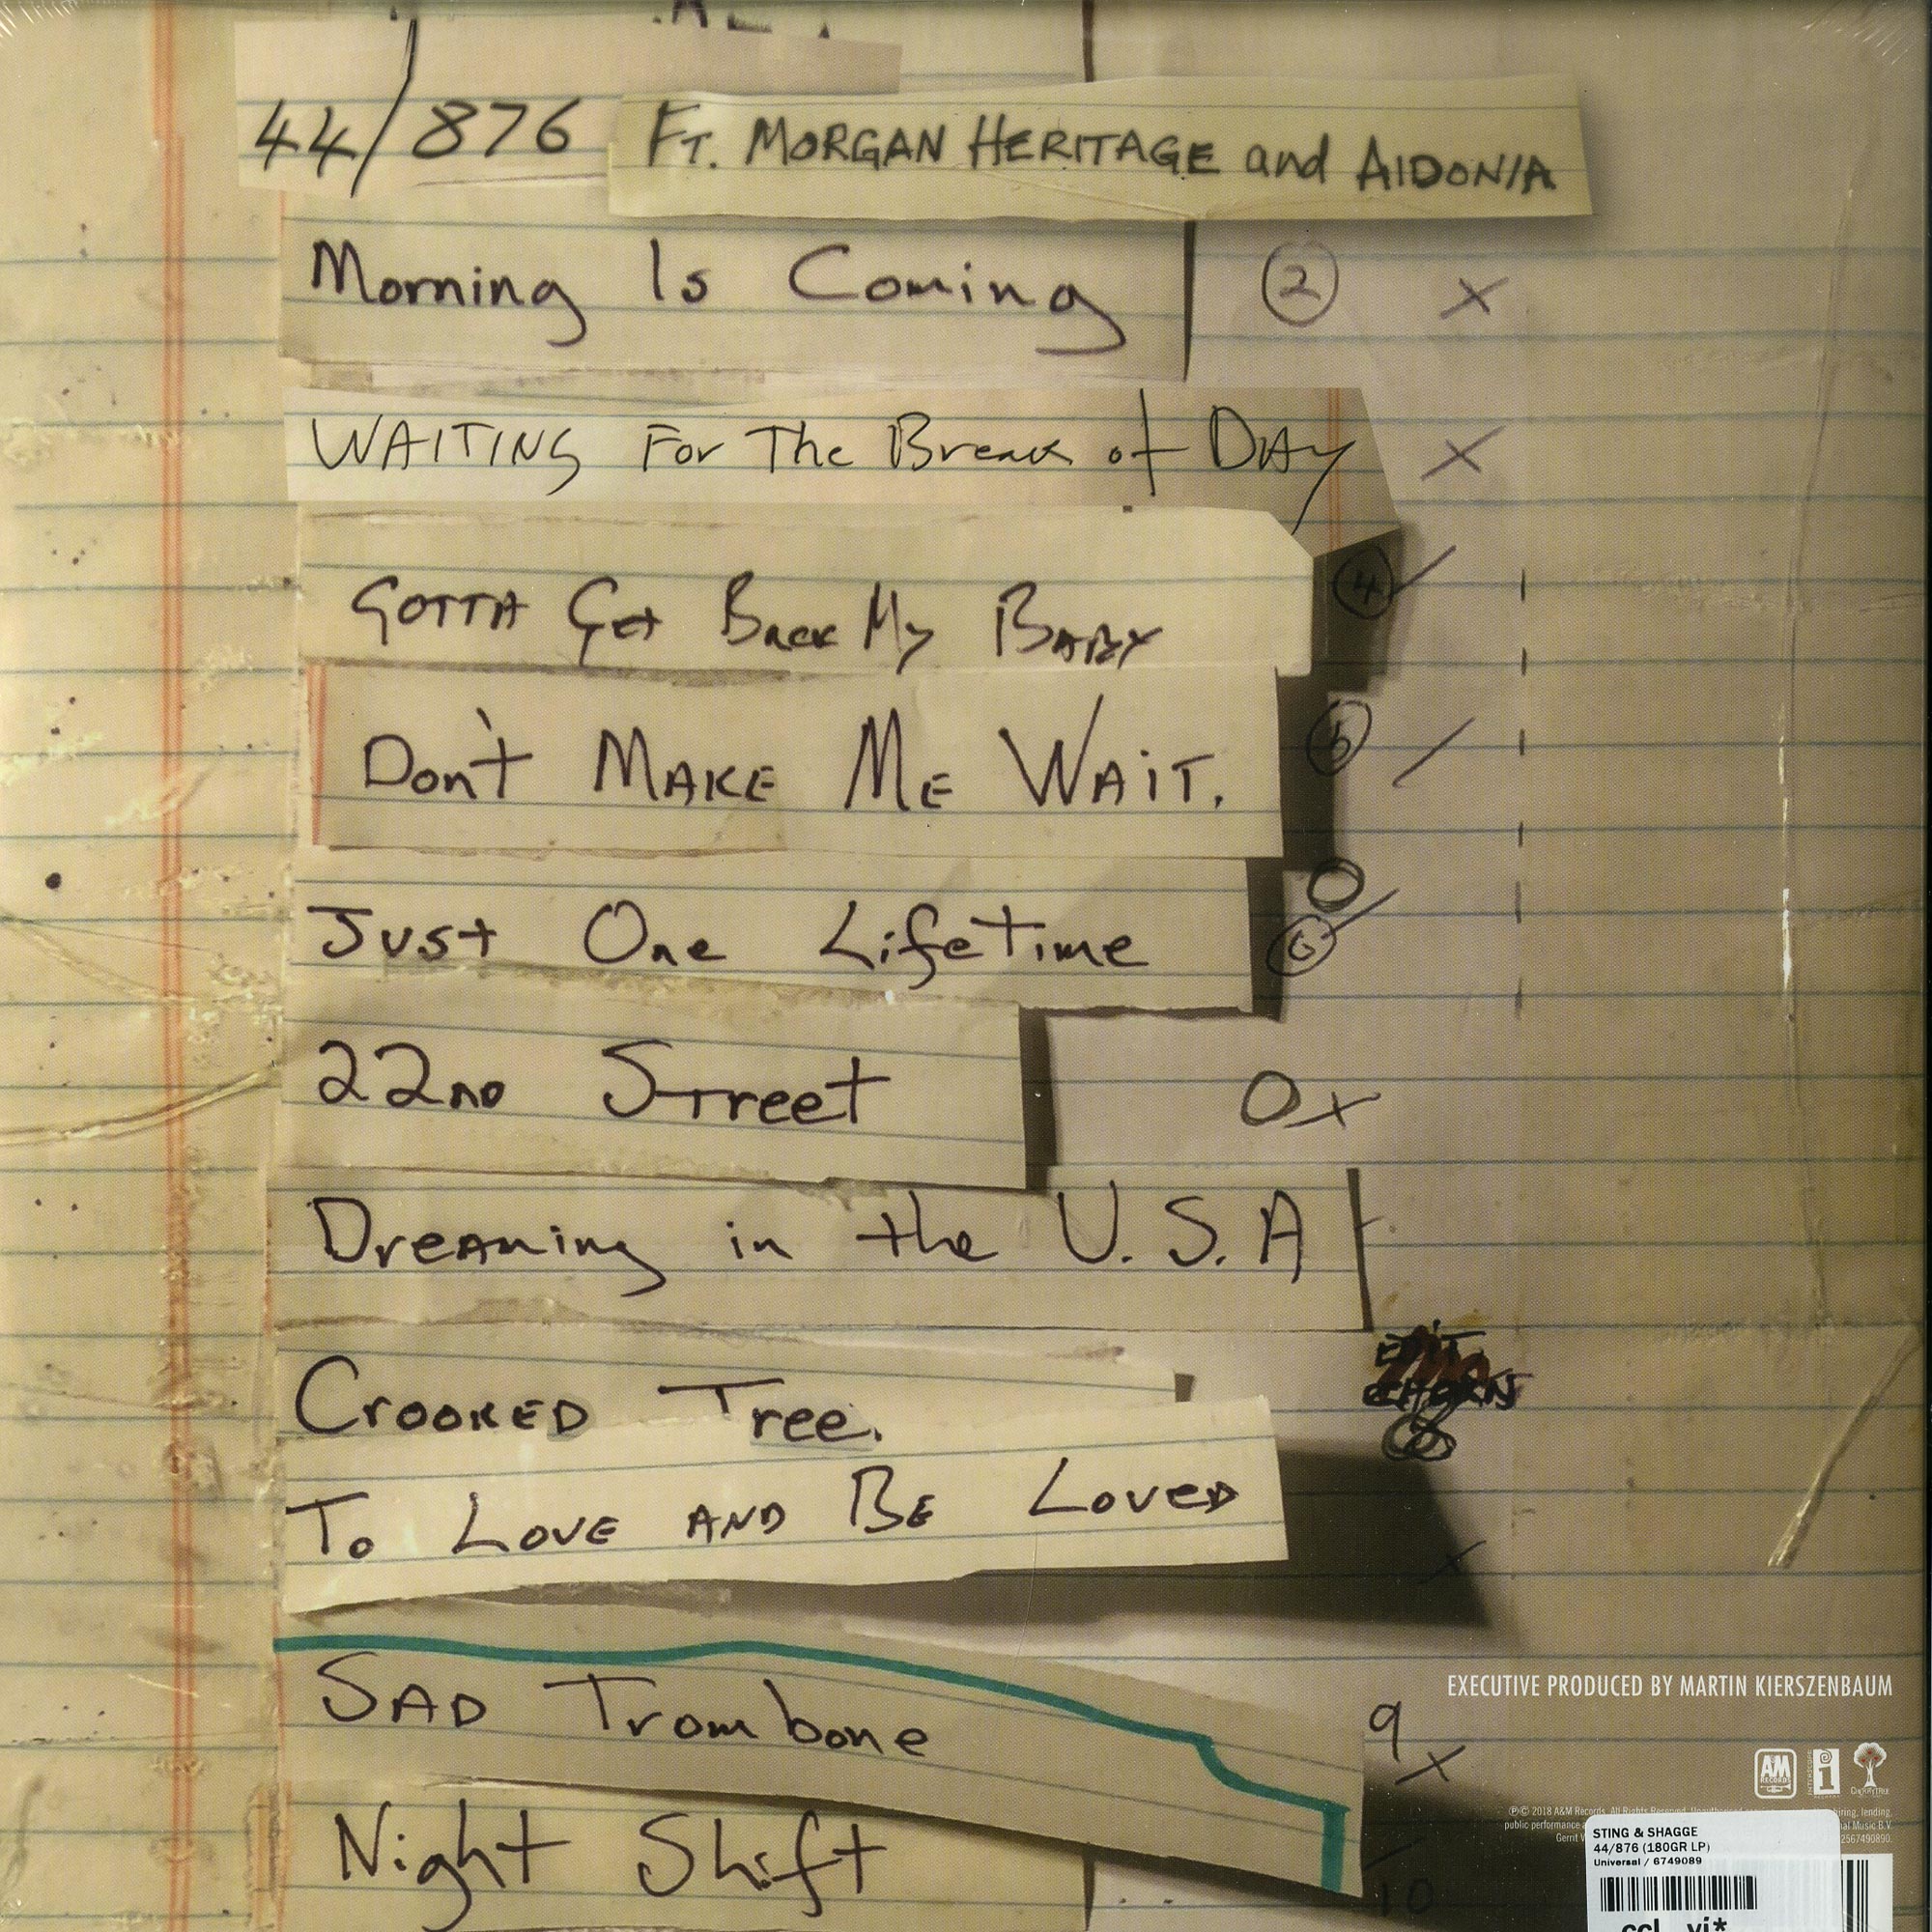 44/876 FT. MORGAN HERITAGE and AIDONIA
Morning Is Coming 2 x
WAITING For The Break of DAy x
GOTTA Get Back My BABY 4
Don't MAKE ME WAiT.
Just One Lifetime 6
22ND Street 0x
Dreaming in the U.S.A
CROOKED Tree.
To LOVE AND BE LOVED x
SAD Trombone 9 x
Night Shift 10
EXECUTIVE PRODUCED BY MARTIN KIERSZENBAUM
AM RECORDS INTERSCOPE CHERRYTREE
℗© 2018 A&M Records. All Rights Reserved. hiring, lending,
public performance al Music B.V.
Gerrit 2567490890.
STING & SHAGGE
44/876 (180GR LP)
Universal / 6749089